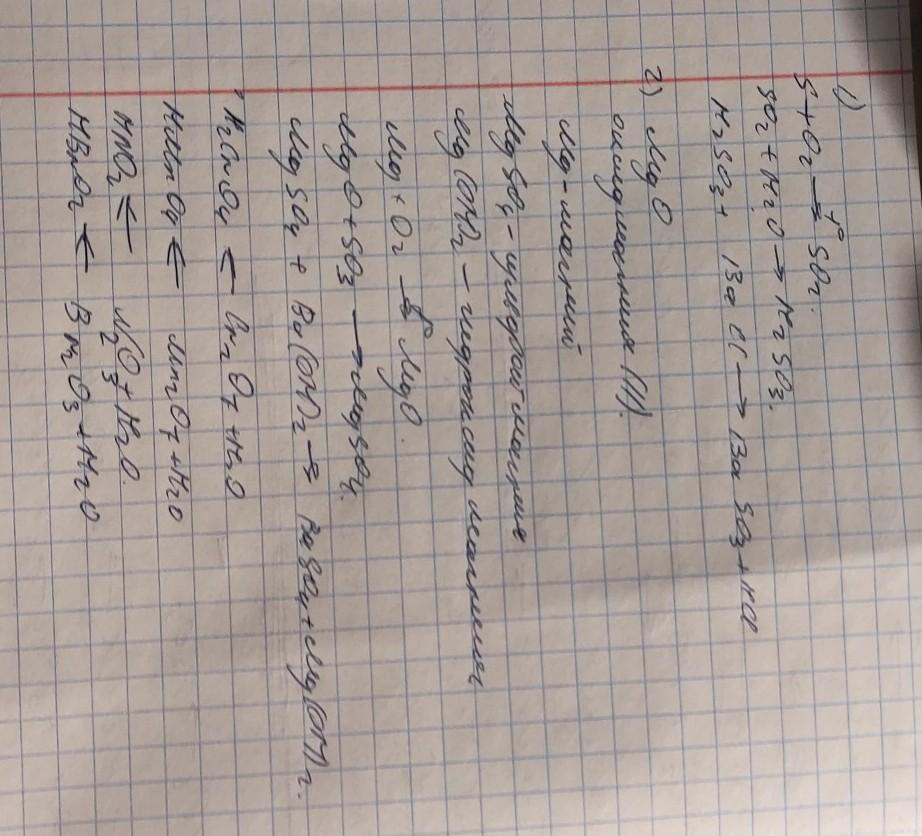 1)
S + O₂ →t° SO₂.
SO₂ + H₂O → H₂SO₃.
H₂SO₃ + BaCl → BaSO₃ + HCl
2) MgO
оксид магния (II).
Mg - магний
MgSO₄ - магния
Mg(OH)₂ - гидроксид магния
Mg + O₂ →t° MgO.
MgO + SO₃ → MgSO₄.
MgSO₄ + Ba(OH)₂ → BaSO₄ + Mg(OH)₂.
H₂CrO₄ ← Cr₂O₇ + H₂O
HMnO₄ ← Mn₂O₇ + H₂O
HNO₂ ← N₂O₃ + H₂O.
HBrO₂ ← Br₂O₃ + H₂O